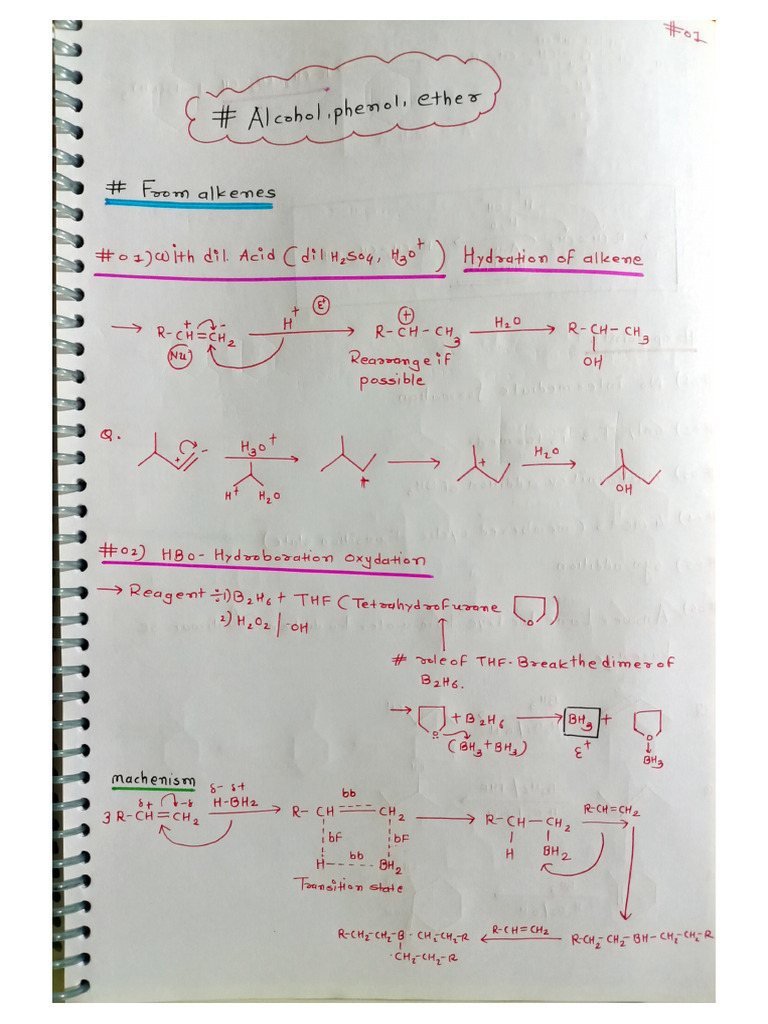 #01
# Alcohol, phenol, ether
# From alkenes
#01) With dil. Acid (dil H₂SO₄, H₃O⁺) Hydration of alkene
→ R-CH=CH₂ → R-CH-CH₃ → R-CH-CH₃
+ -
H⁺ E⁺
+
H₂O
Nu
OH
Rearrange if
possible
Q.
+ -
H₃O⁺
H⁺ H₂O
+
→
+
H₂O
OH
#02) HBO- Hydroboration oxydation
→ Reagent ÷ 1) B₂H₆ + THF (Tetrahydrofurane O)
2) H₂O₂ / ⁻OH
# role of THF- Break the dimer of
B₂H₆.
→ O + B₂H₆ → BH₃ + O
(BH₃ + BH₃)
E⁺
BH₃
machenism
δ- δ+
H-BH₂
δ+ -δ
3 R-CH=CH₂ → R- CH CH₂ → R-CH-CH₂
bb
bF bF
bb
H BH₂
Transition state
H BH₂
R-CH=CH₂
R-CH₂-CH₂-B-CH₂-CH₂-R ← R-CH₂-CH₂-BH-CH₂-CH₂-R
R-CH=CH₂
CH₂-CH₂-R